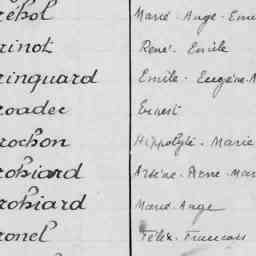 réhol Marie-Ange-Em
rinot René-Emile
rinquard Emile-Eugène-
roadec Ernest
rochon Hippolyte-Marie
rohiard Arsène-Aime-Mar
rohiard Marie-Ange
ronel Félix-Francois